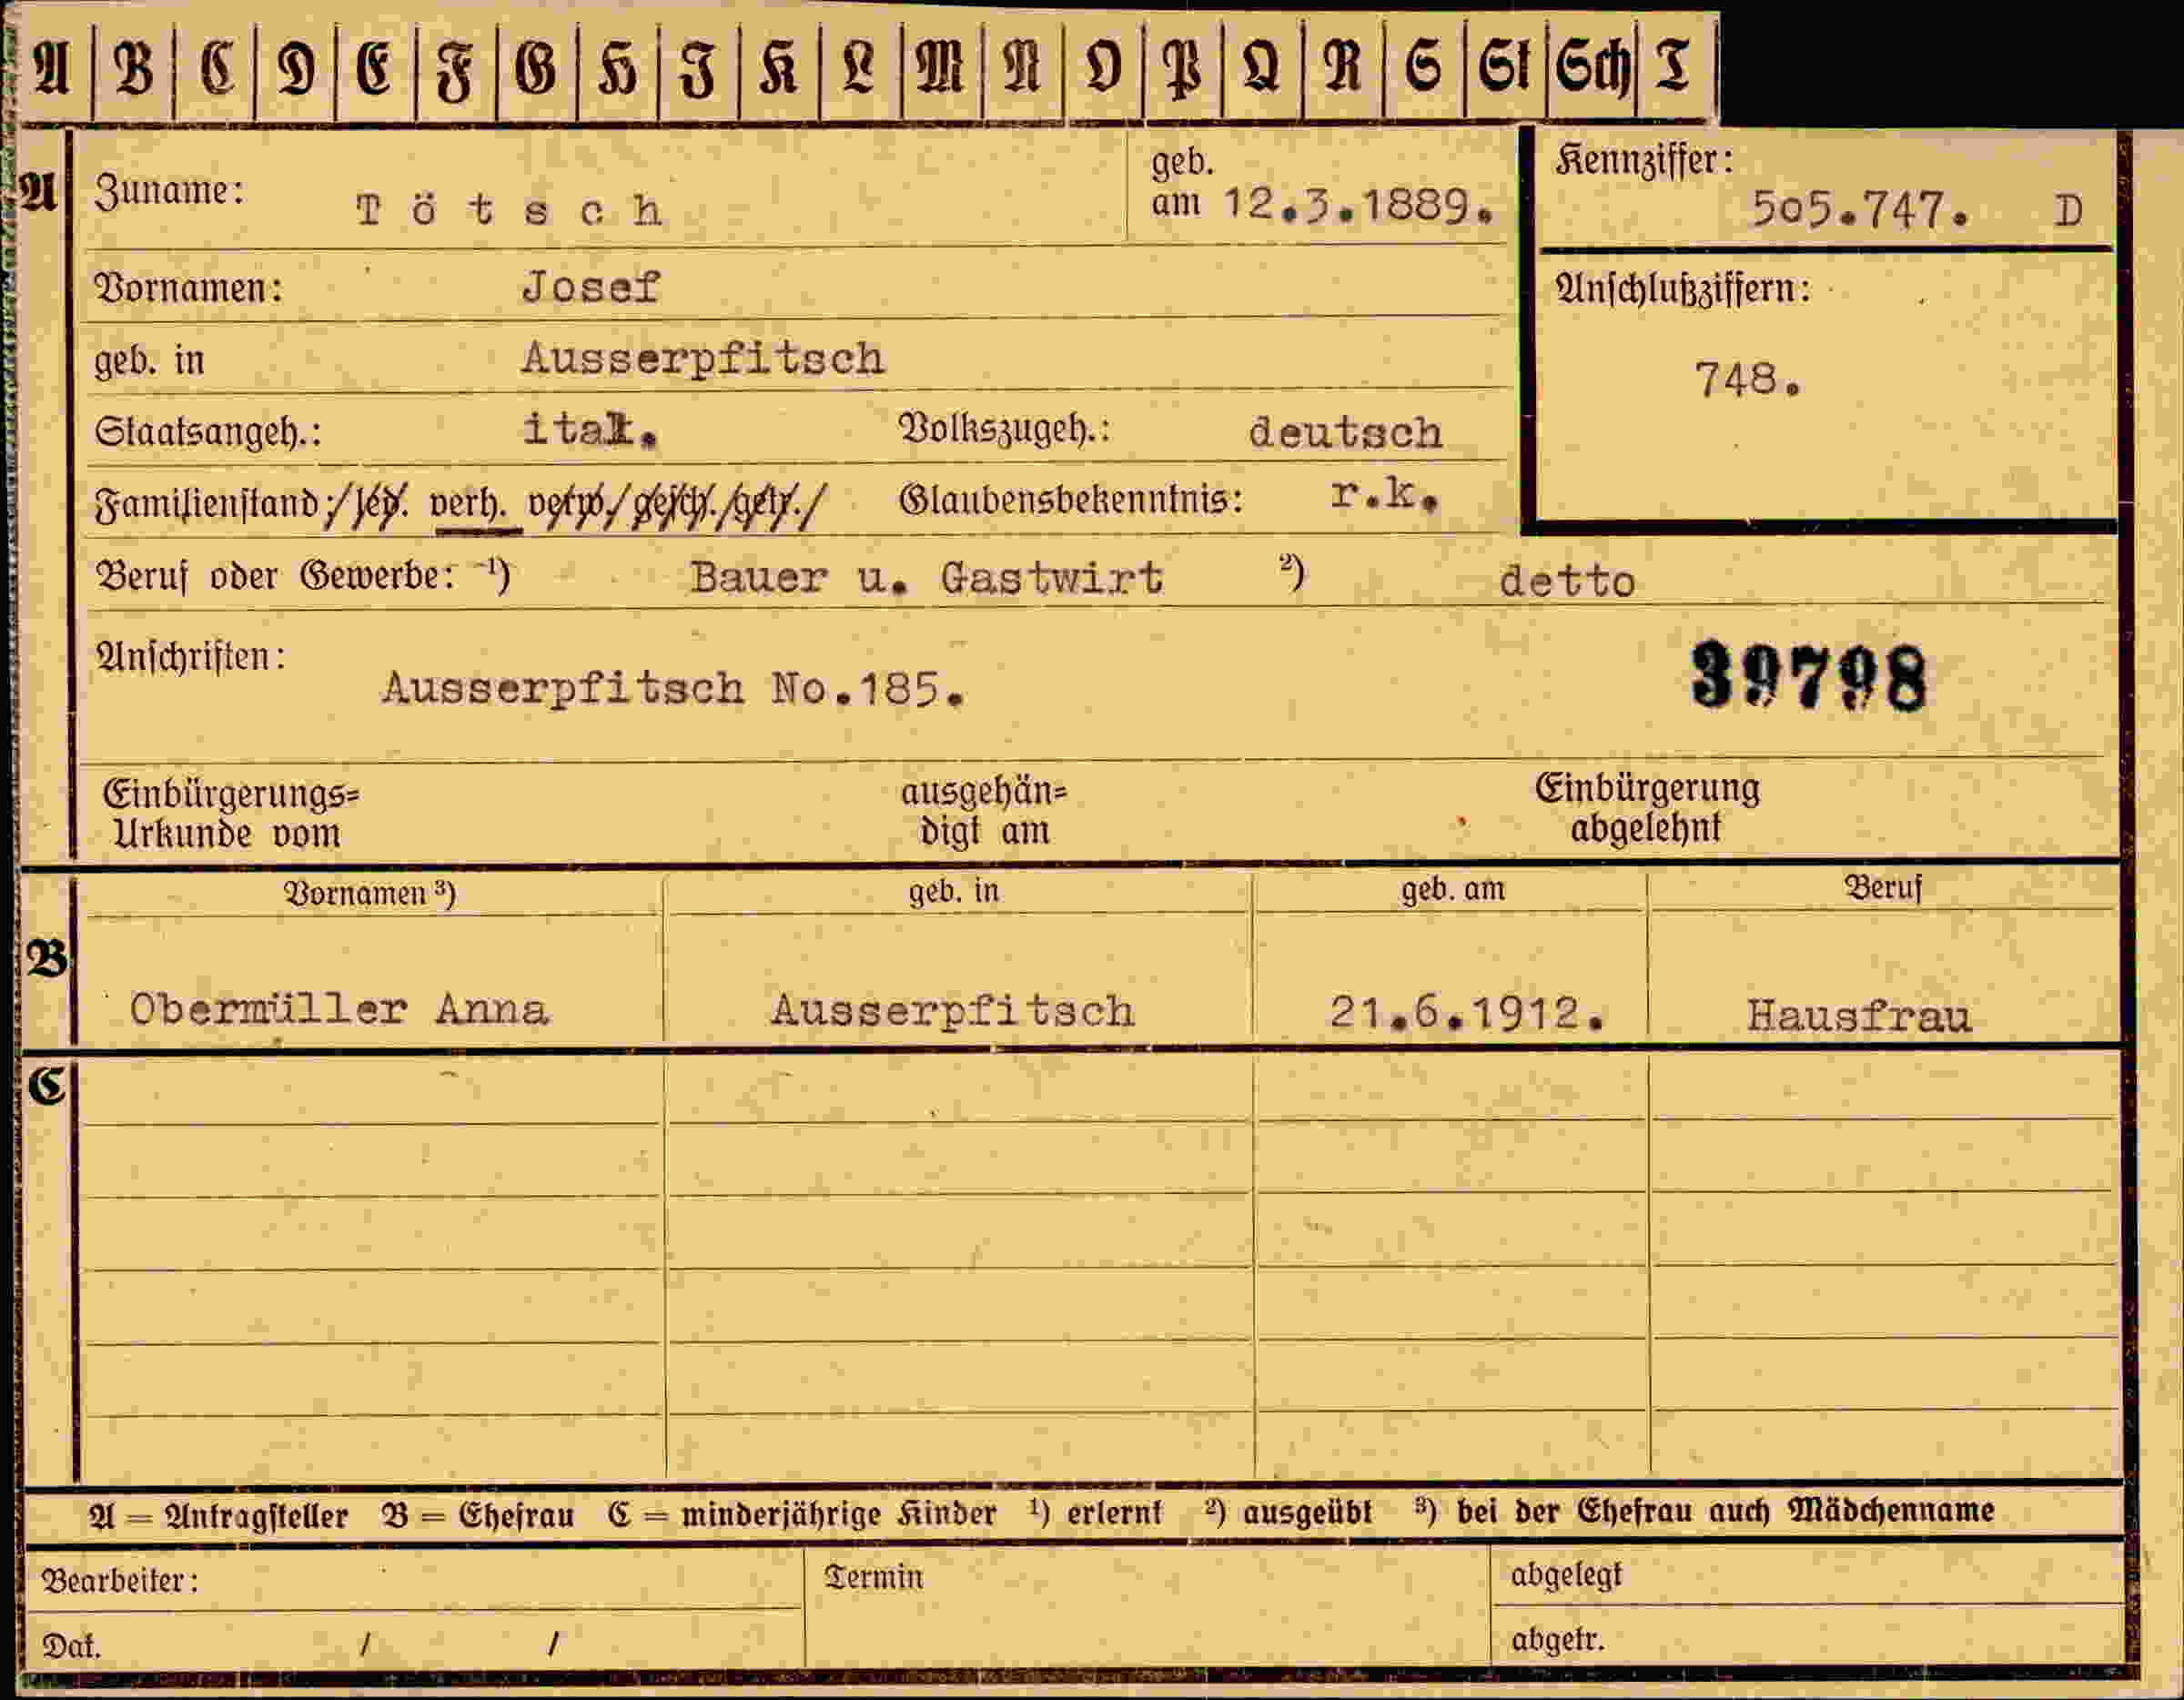 A B C D E F G H J K L M N O P Q R S St Sch T
A Zuname: Tötsch geb. am 12.3.1889. Kennziffer: 505.747. D
Vornamen: Josef Anschlußziffern:
geb. in Ausserpfitsch 748.
Staatsangeh.: ital. Volkszugeh.: deutsch
Familienstand: led. verh. verw. gesch. getr. Glaubensbekenntnis: r.k.
Beruf oder Gewerbe: ¹) Bauer u. Gastwirt ²) detto
Anschriften: Ausserpfitsch No.185. 39798
Einbürgerungs= ausgehän= Einbürgerung
Urkunde vom digt am abgelehnt
B Vornamen ³) geb. in geb. am Beruf
Obermüller Anna Ausserpfitsch 21.6.1912. Hausfrau
C
A = Antragsteller B = Ehefrau C = minderjährige Kinder ¹) erlernt ²) ausgeübt ³) bei der Ehefrau auch Mädchenname
Bearbeiter: Termin abgelegt
Dat. / / abgetr.